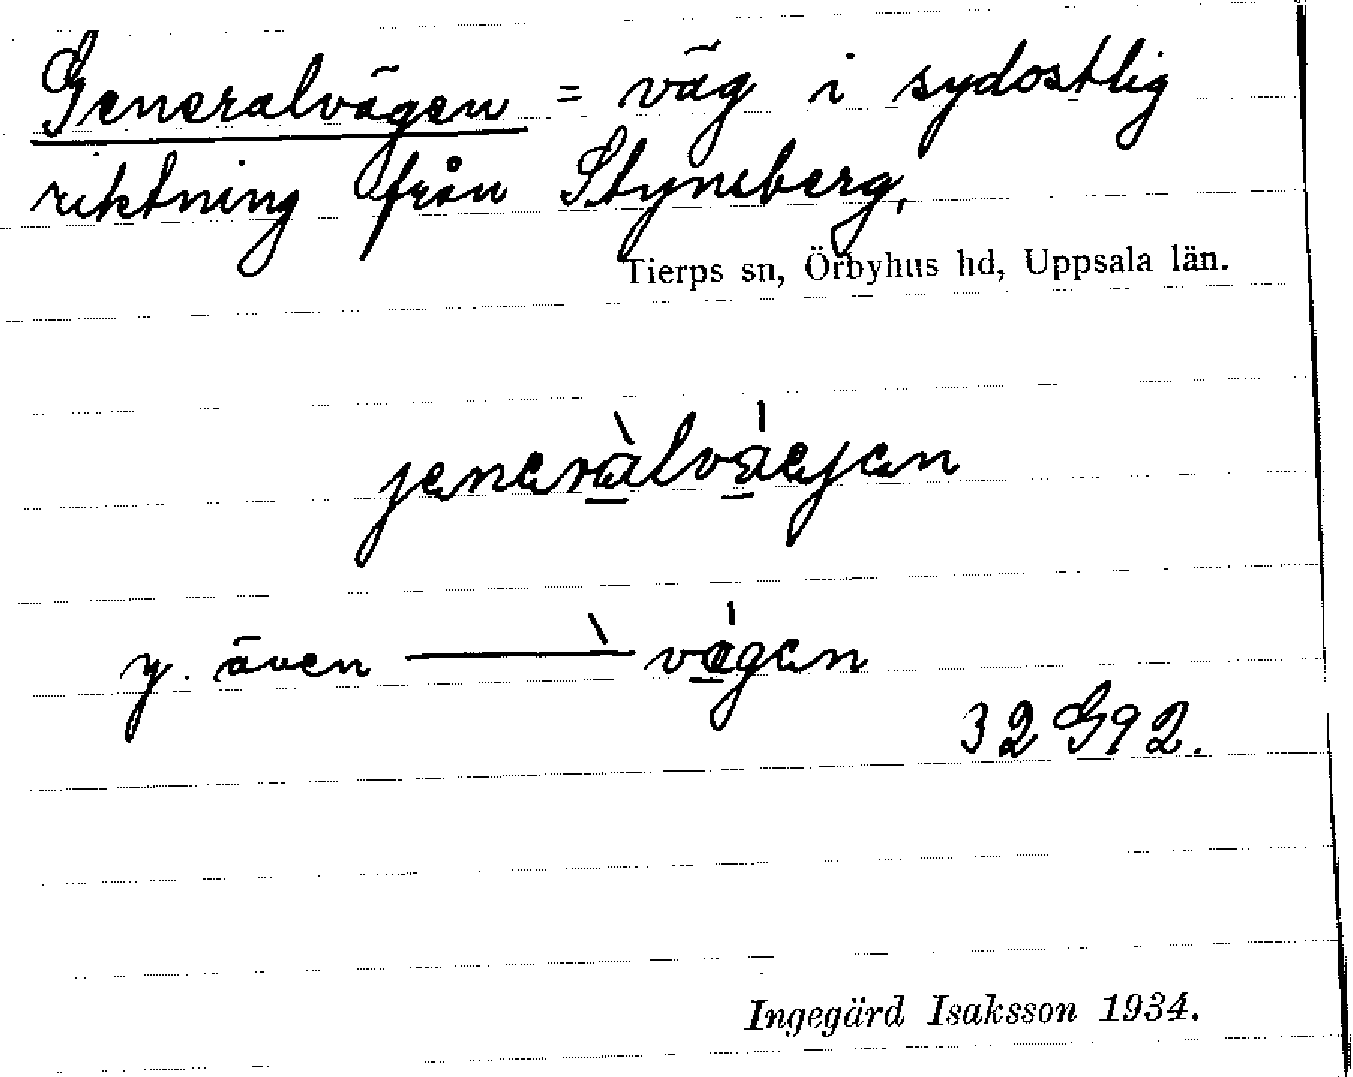 Generalvägen = väg i sydostlig
riktning från Styneberg,
Tierps sn, Örbyhus hd, Uppsala län.
jeneràlváejen
y. även ——— vágen
32 G92.
Ingegärd Isaksson 1934.